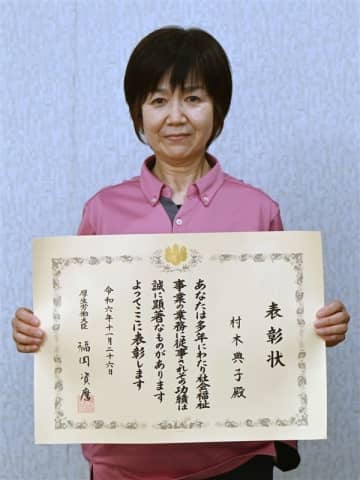 表彰状
村木典子殿
あなたは多年にわたり社会福祉
事業の業務に従事されその功績は
誠に顕著なものがあります
よってここに表彰します
令和六年十一月二十六日
厚生労働大臣 福岡資麿